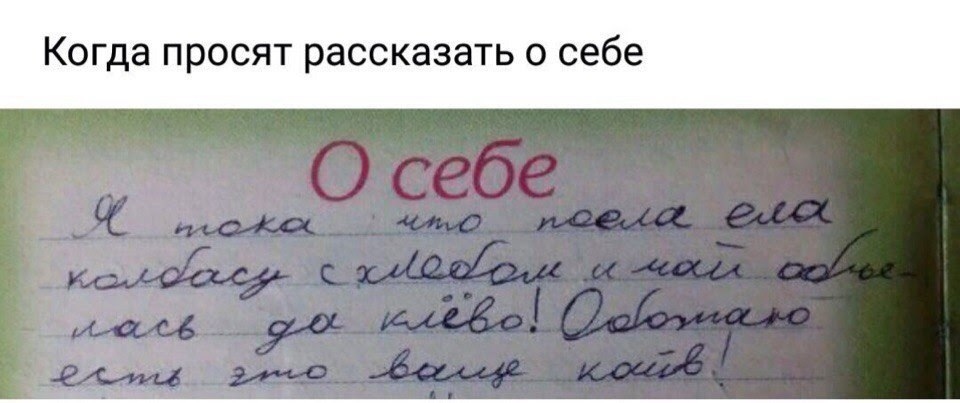 Когда просят рассказать о себе
О себе
Я тока что поела ела
колбасу с хлебом и май обье-
лась да клёво! Оботаю
есть это ваще кайв!